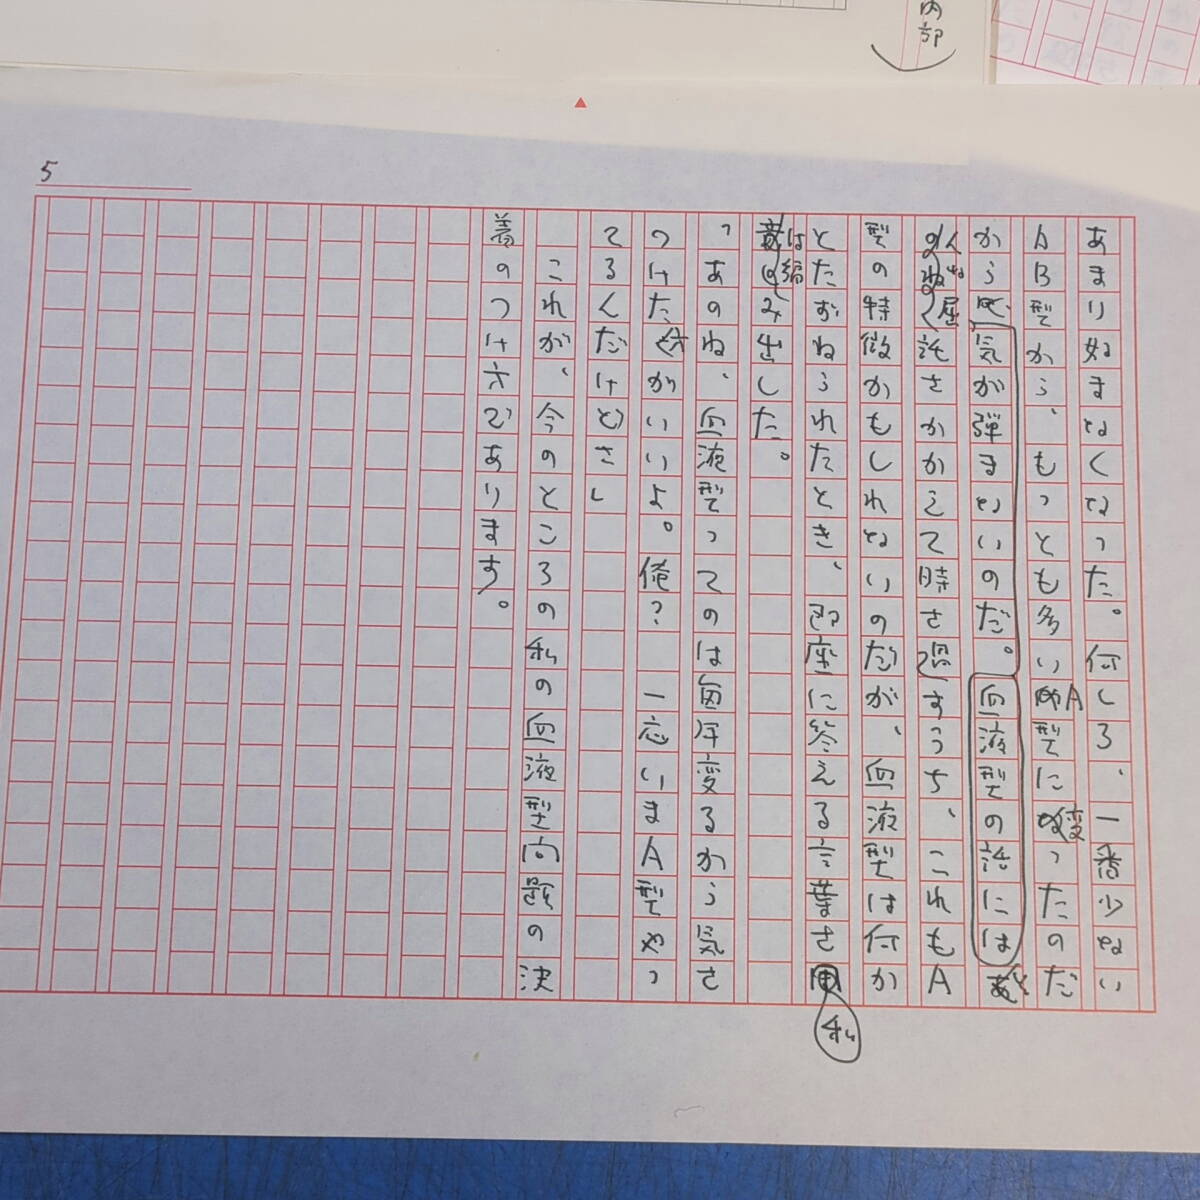 内部
5
あまり好まなくなった。何しろ、一番少ない
AB型から、もっとも多いA型に変ったのだ
から、気が弾まないのだ。血液型の話には
屈託をかかえて時を過すうち、これもA
型の特徴かもしれないのだが、血液型は何か
とたずねられたとき、即座に答える言葉を私
は編み出した。
「あのね、血液型ってのは毎年変るから気を
つけた方がいいよ。俺？　一応いまA型やっ
てるんだけどさ」
これが、今のところの私の血液型問題の決
着のつけ方であります。